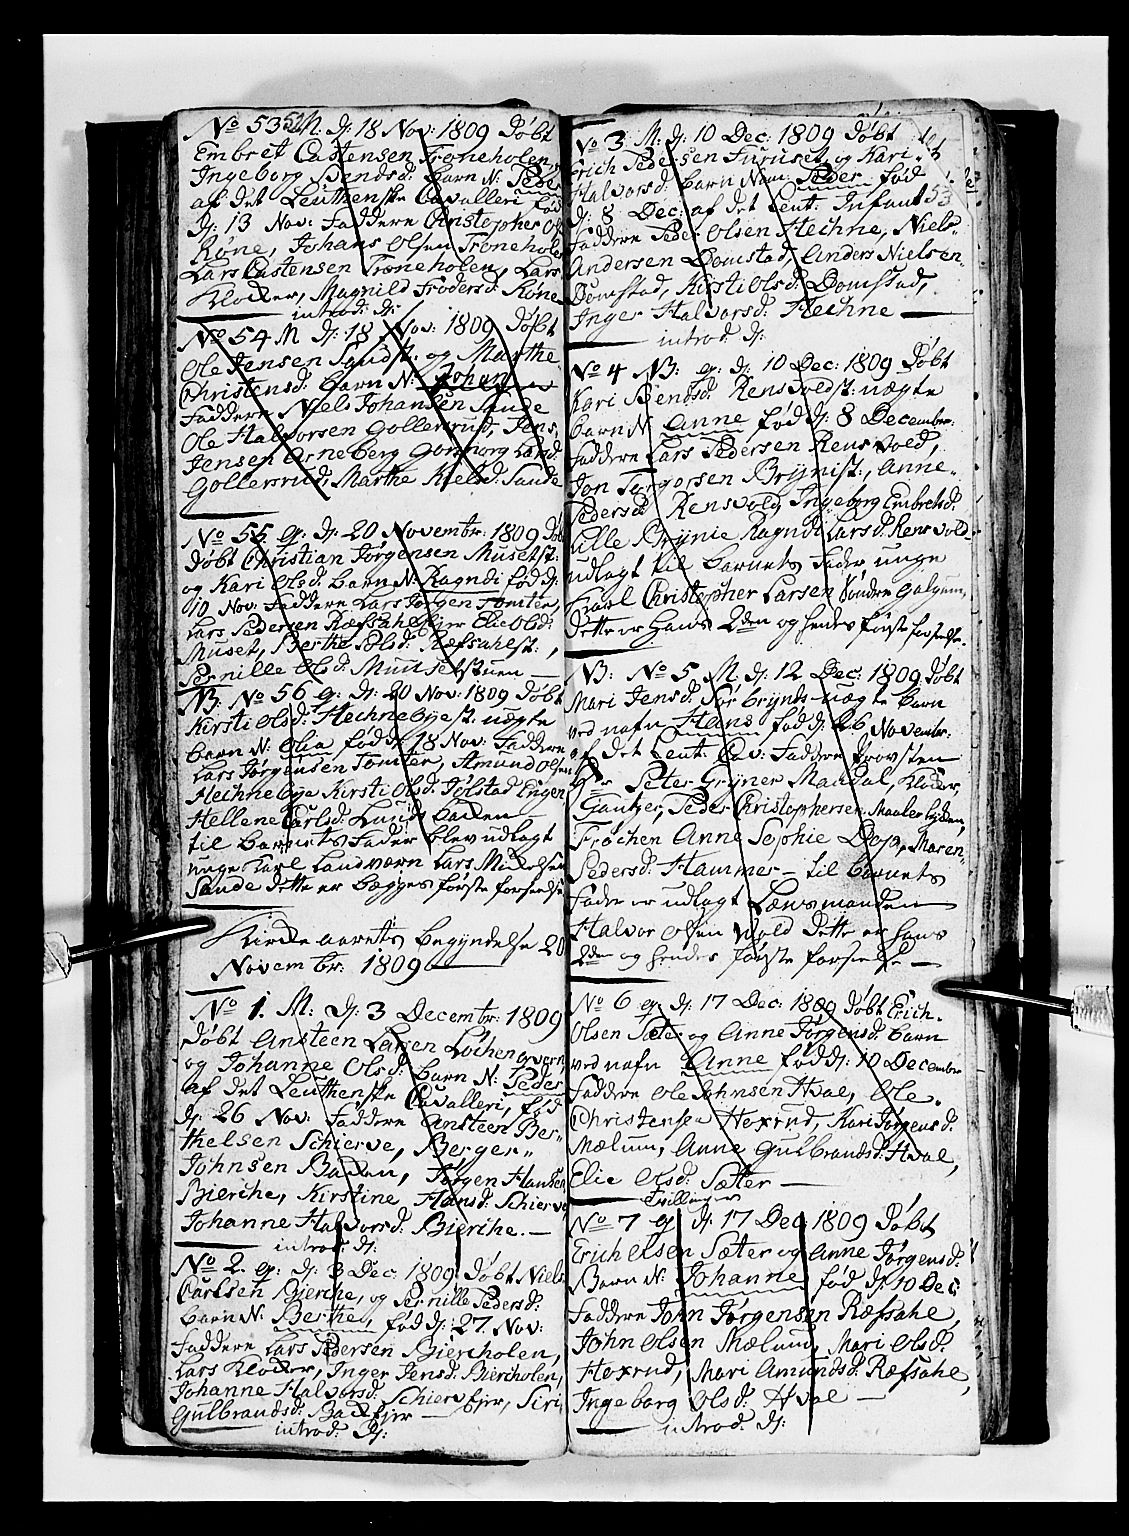 No 53 M. dj: 18 Nov: 1809 døbt
Embret Castensen Troneholen,
Ingeborg Bendsd: barn N: Peder
af det Leuthenske Cavalleri fød
dj: 13 Nov: Faddere Christopher Ols
Røne, Johans Olsen Troneholen
Lars Castensen Troneholen, Lars
Klocker, Magnild Frodersd: Røne
introd: dj:
No 54 M dj: 18 Nov: 1809 døbt
Ole Jensen og Marthe
Christensd: barn N: Johan
Faddere Niels Johansen Sande
Ole Halvorsen Gollerrud, Jens
Jensen Arneberg Gonnorg Larsd:
Gollerrud, Marthe Nielsd: Sande
No 55 q: dj: 20 Novembr: 1809 døbt
døbt Christian Jørgensen Musetst:
og Kari Olsd: barn N: Ragndi fød dj:
10 Nov: Faddere Lars Jørgen Tomter,
Lars Pedersen Ræfsahl Elie Olsd:
Muset, Berthe Olsd: Ræfsahlst:,
Pernille Olsd: Musetstuen
NB: No 56 q: dj: 20 Nov: 1809 døbt
Kirsti Olsd: Hechnebyest: uægte
barn N: Olia fød dj: 18 Nov: Faddere
Lars Jørgensen Tomter, Amund Olsen
Hechnebye Kirsti Olsd: Jølstad Engen
Hellene Carlsd: Lund backen
til barnets Fader blev udlagt
unge Karl Landværn Lars Mickelsen
Sande dette er begges første forseelse
Kircke aarets begyndelse 20
Novembr: 1809
No 1. M: dj: 3 Decembr: 1809
døbt Ansteen Larsen Løchen
og Johanne Olsd: barn N: Peder
af det Leuthenske Cavalleri, fød
dj: 26 Nov: Faddere Ansteen Ber-
thelsen Schierve, Berger
Johnsen Backen, Jørgen Hansen
Bierche, Kirstine Hansd: Schierve
Johanne Halvorsd: Bierche.
introd: dj:
No 2. q: dj: 3 Dec: 1809 døbt Niels
Carlsen Bierche, og Pernille Pedersd:
barn N: Berthe, fød dj: 27 Nov:
Faddere Lars Pedersen Biercholen,
Lars Klocker, Inger Jensd: Biercholen,
Johanne Halvorsd: Schierv Ejer, Siri
Gulbrandsd: Back Ejer
introd: dj:
No 3 M: dj: 10 Dec: 1809 døbt
Erich Pedersen Furuset og Kari
Halvorsd: barn Navn: Peder fød
dj: 8 Dec: af det Leut: Infant
Faddere Peder Olsen Hechne, Niels
Andersen Domstad, Anders Nielsen
Domstad, Kirsti Olsd: Domstad,
Inger Halvorsd: Hechne
introd: dj:
No 4 NB: q: dj: 10 Dec: 1809 døbt
Kari Bendsd: Rensvoldst: uægte
barn N: Anne fød dj: 8 December
Faddere Lars Pedersen Rensvold,
Jon Torgersen Brynist:, Anne
Pedersd: Rensvold, Ingeborg Embretsd:
Lille Brynie Ragndi Larsd: Rensvold
udlagt til barnets Fader unge
Karl Christopher Larsen Søndre Galgum,
dette er hans 2den og hendes første forseelse
NB: No 5 M. dj: 12 Dec: 1809 døbt
Mari Jensd: Sør brynds uægte barn
ved nafn Hans fød dj: 26 Novembr:
af det Leut: Cav: Faddere Provsten
Hr Peter Gryner Mandal, Klocker
Gantzer, Peder Christophersen Maalerbyden,
Frøchen Anne Sophie Dop, Maren
Pedersd: Hammer til barnets
Fader er udlagt Lænsmanden
Halvor Olsen Wold dette er hans
2den og hendes første forseelse
No 6 q: dj: 17 Dec: 1809 døbt Erich
Olsen Sæter og Anne Jørgensd: barn
ved nafn Anne fød dj: 10 December
Faddere Ole Johnsen Hval, Ole
Christensen Hoxrud, Kari Jørgensd:
Mælum, Anne Gulbrandsd: Hval,
Elie Olsd: Sæter
Tvillinger
No 7 q dj: 17 Dec: 1809 døbt
Erich Olsen Sæter og Anne Jørgensd:
Barn N: Johanne fød dj: 10 Dec:
Faddere John Jørgensen Ræfsahl,
John Olsen Mælum, Mari Olsd:
Hoxrud, Mari Amundsd: Ræfsahl,
Ingeborg Olsd: Hval
introd: dj: